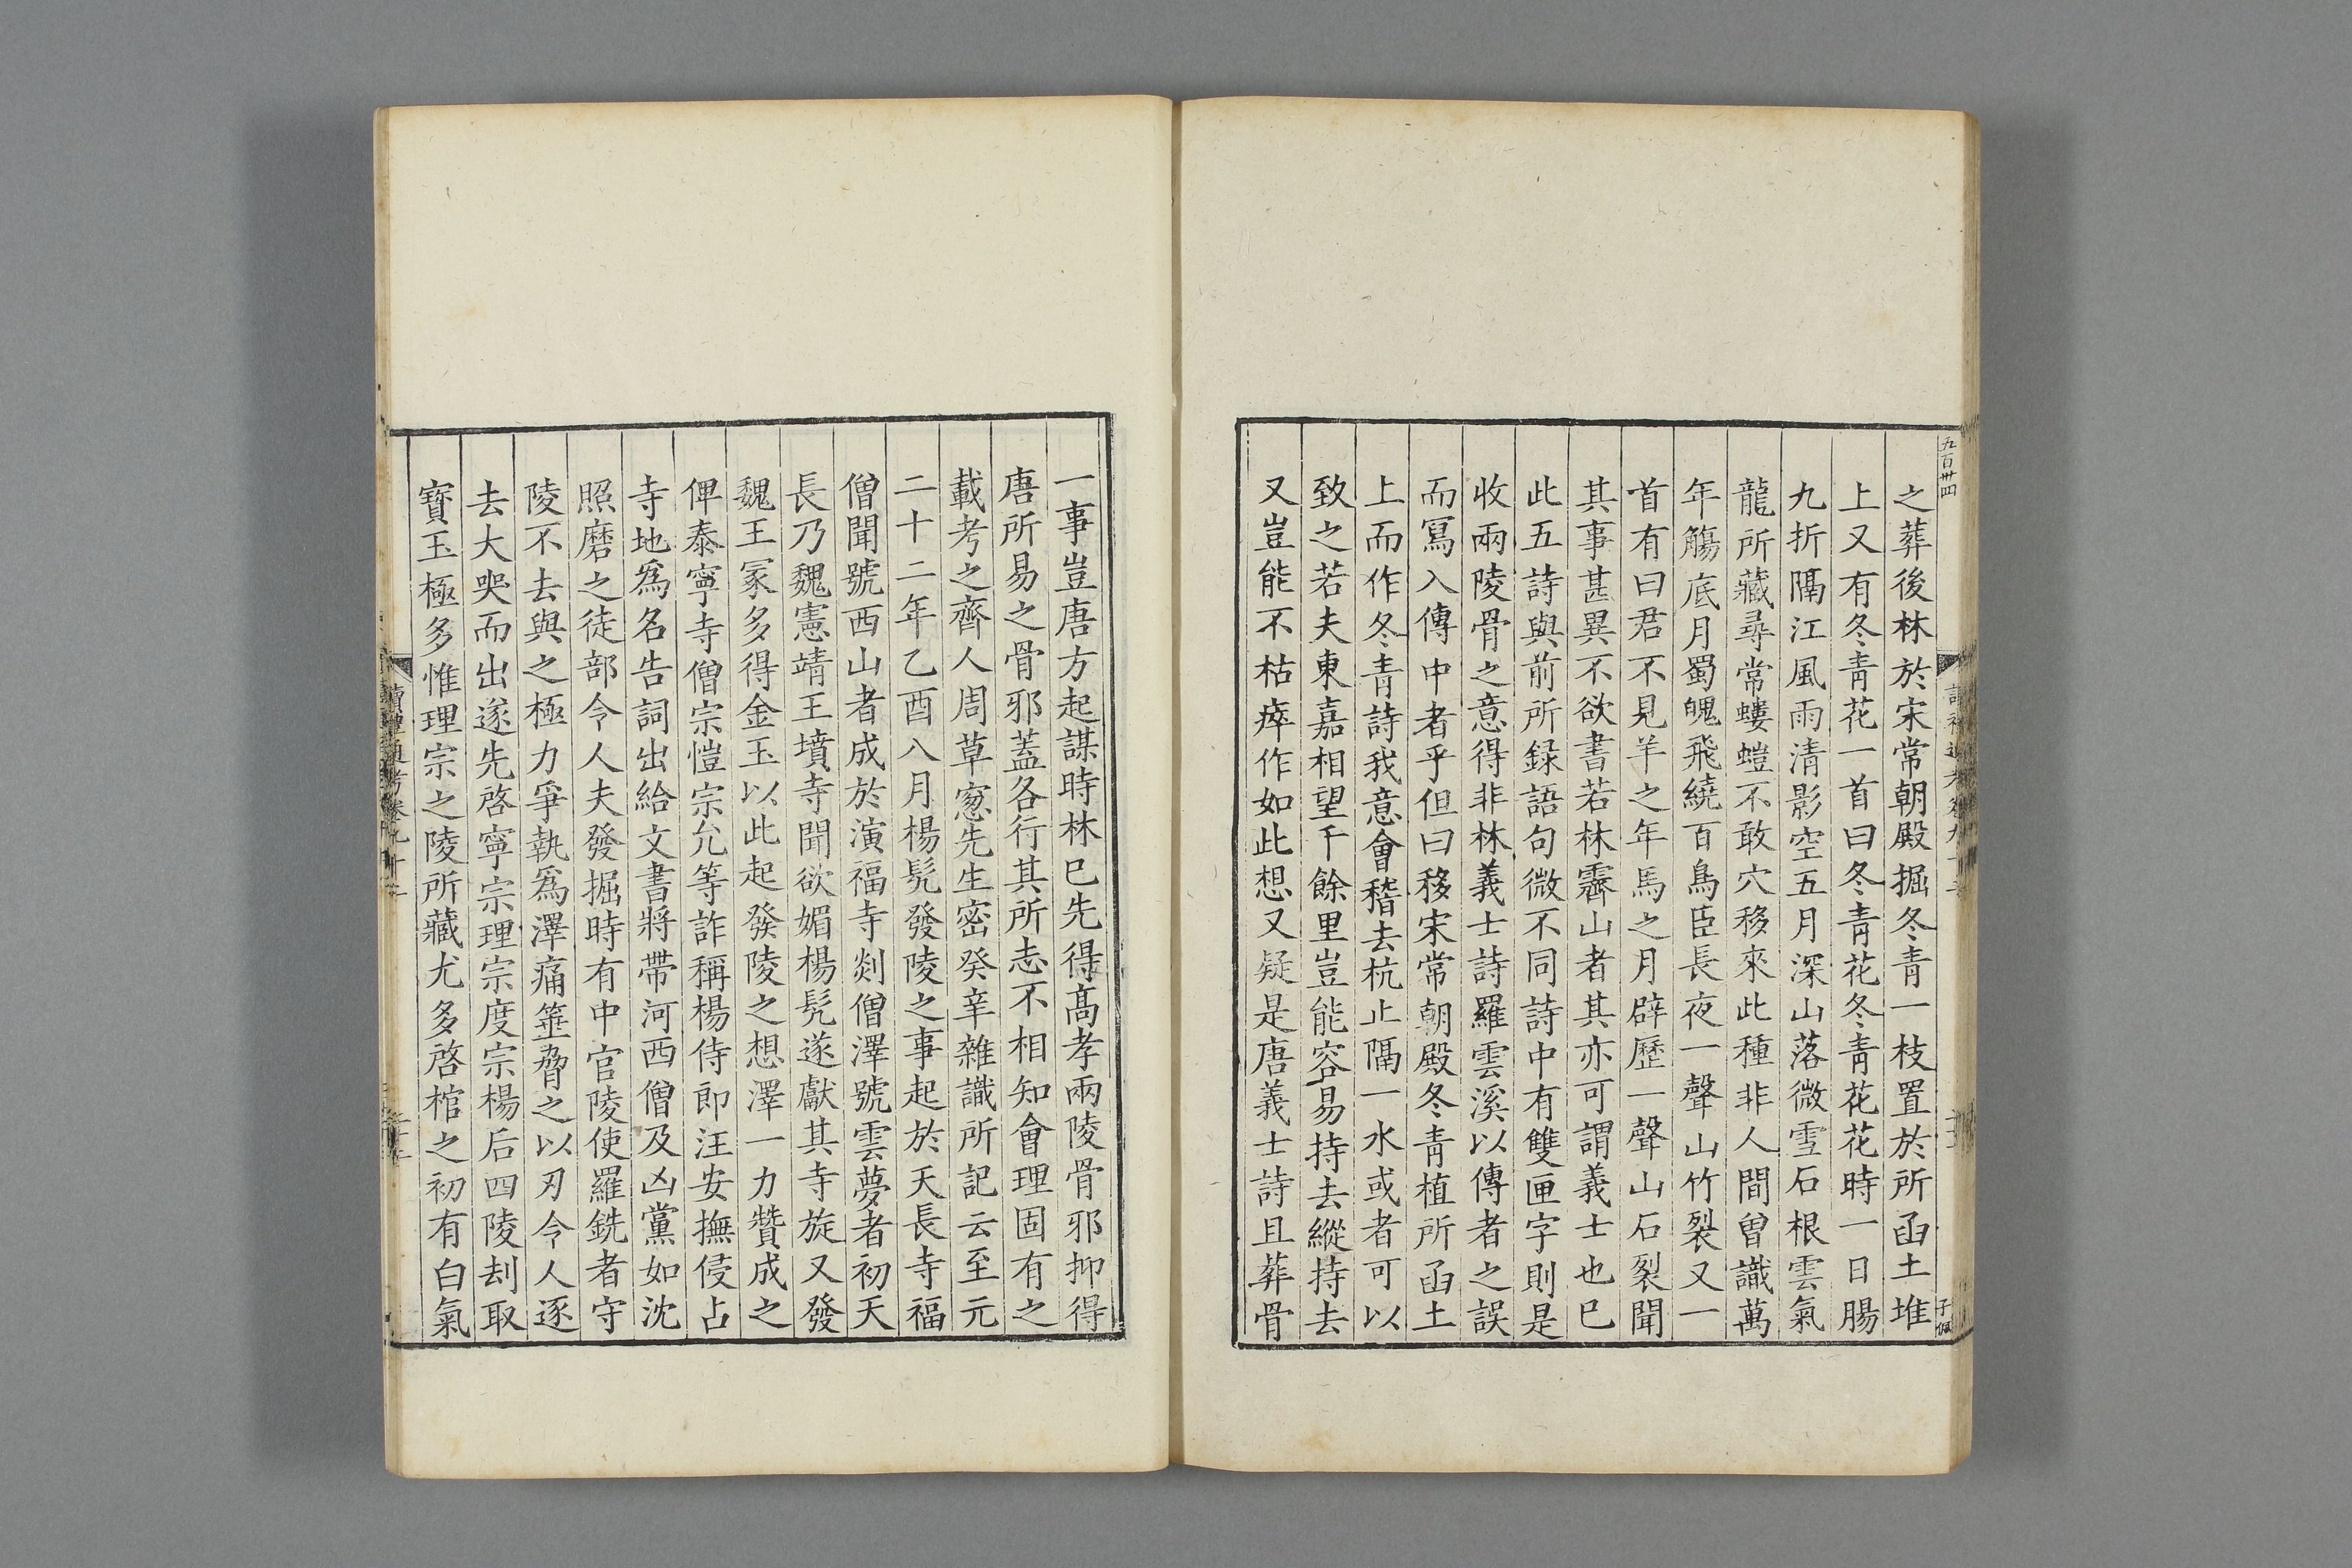 五百卅四
之葬後林於宋常朝殿掘冬青一枝置於所函土堆
上又有冬青花一首曰冬青花冬青花花時一日腸
九折隔江風雨清影空五月深山落微雪石根雲氣
龍所藏尋常螻螘不敢穴移來此種非人間曾識萬
年觴底月蜀魄飛繞百鳥臣長夜一聲山竹裂又一
首有曰君不見羊之年馬之月辟歷一聲山石裂聞
其事甚異不欲書若林霽山者其亦可謂義士也巳
此五詩與前所録語句微不同詩中有雙匣字則是
收兩陵骨之意得非林義士詩羅雲溪以傳者之誤
而寫入傳中者乎但曰移宋常朝殿冬青植所函土
上而作冬青詩我意會稽去杭止隔一水或者可以
致之若夫東嘉相望千餘里豈能容易持去縱持去
又豈能不枯瘁作如此想又疑是唐義士詩且葬骨
一事豈唐方起謀時林巳先得高孝兩陵骨邪抑得
唐所易之骨邪蓋各行其所志不相知會理固有之
載考之齊人周草窻先生密癸辛雜識所記云至元
二十二年乙酉八月楊髡發陵之事起於天長寺福
僧聞號西山者成於演福寺剡僧澤號雲夢者初天
長乃魏憲靖王墳寺聞欲媚楊髡遂獻其寺旋又發
魏王冢多得金玉以此起發陵之想澤一力贊成之
俾泰寧寺僧宗愷宗允等詐稱楊侍郎汪安撫侵占
寺地爲名告詞出給文書將帶河西僧及凶黨如沈
照磨之徒部令人夫發掘時有中官陵使羅銑者守
陵不去與之極力爭執爲澤痛箠脅之以刃令人逐
去大哭而出遂先啓寧宗理宗度宗楊后四陵刦取
寳玉極多惟理宗之陵所藏尤多啓棺之初有白氣
讀禮通考卷九十二